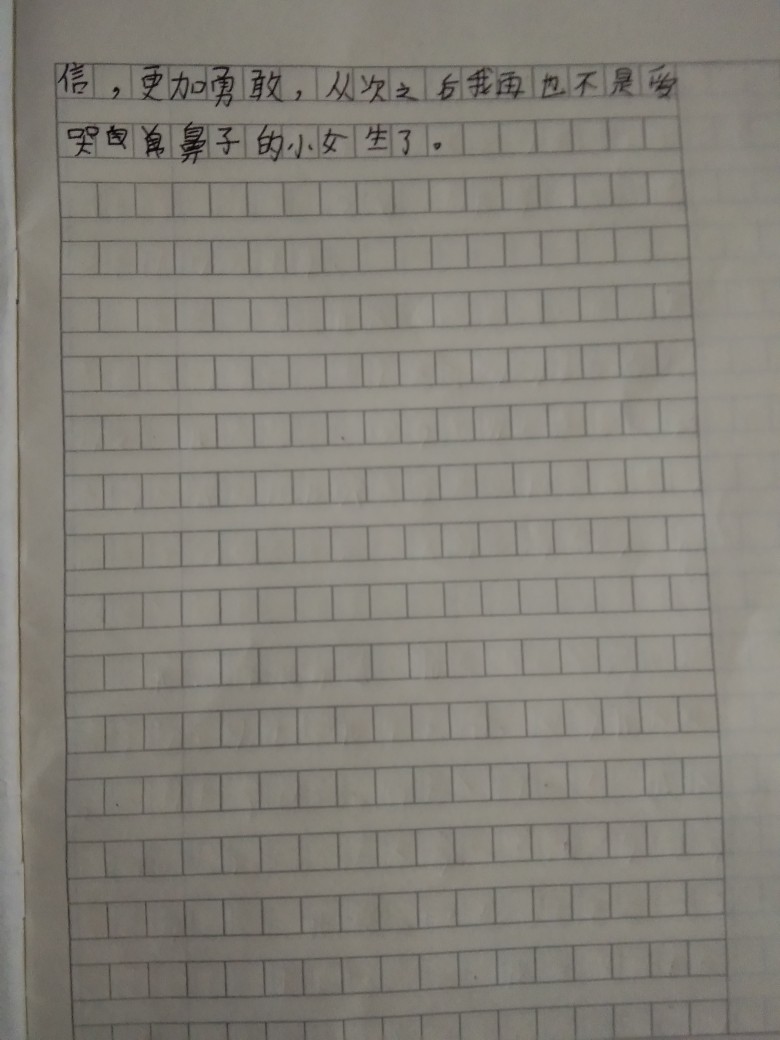 信，更加勇敢，从次之后我再也不是爱
哭鼻子的小女生了。